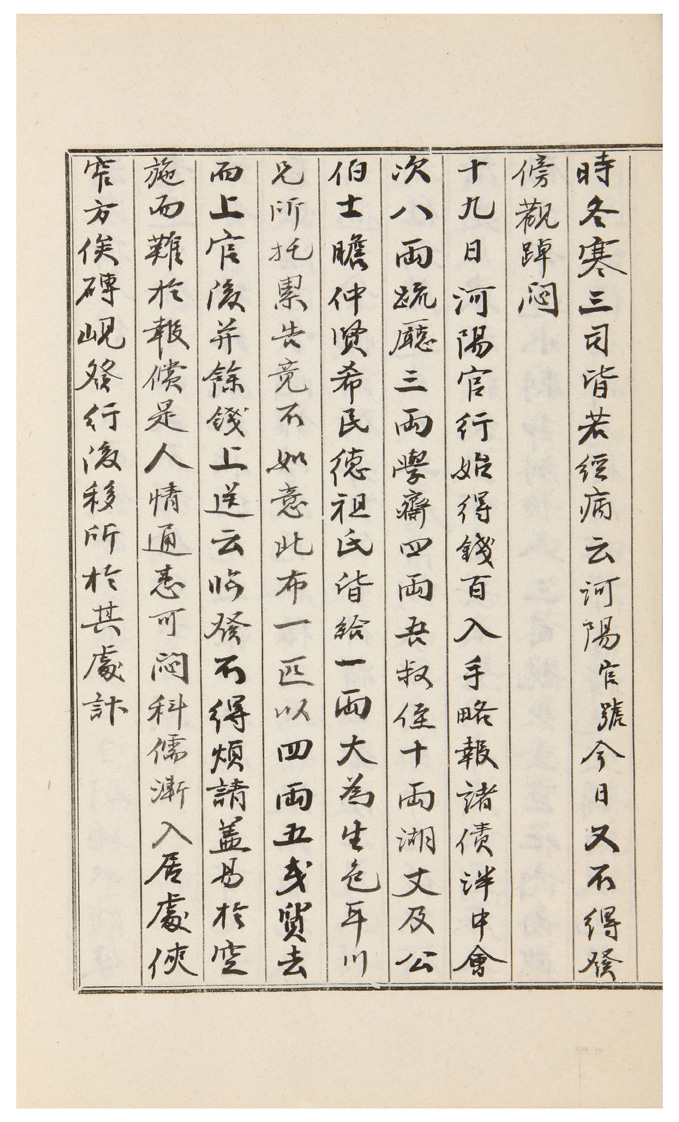 時冬寒三司皆若經病云河陽官號今日又不得發
傍觀踔悶
十九日河陽官行始得錢百入手略報諸債泮中會
次八兩疏廳三兩學齋四兩吾叔侄十兩湖丈及公
伯士瞻仲賢希民德祖氏皆給一兩大為生色耳川
兄所托累告竟不如意此布一匹以四兩五戔貿去
而上官後并餘錢上送云臨發不得煩請盖易於空
施而難於報償是人情通患可悶科儒漸入居處俠
窄方俟磚峴發行後移所於其處計